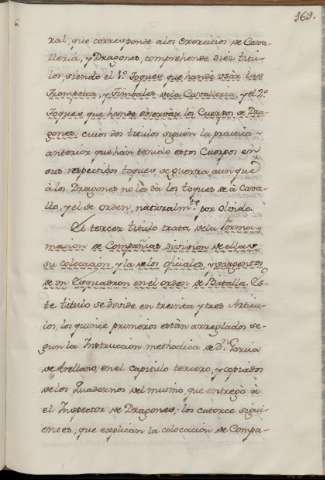 169.
ral, que corresponde a los Exercicios de Cava-
lleria, y Dragones, comprehende diez titu-
los siendo el 1º. Toques que han de usar los
Trompetas, y Timbales de la Cavalleria, y el 2º.
Toques que han de executar los Cuerpos de Dra-
gones, cuios dos titulos siguen la practica
anterior que han tenido estos Cuerpos en
sus respectivos toques de Guerra, aunque
à los Dragones no la da los toques de à Cava-
llo, y el de orden, naturalmte. por olvido.
El tercer titulo trata de la formacion
de Compañias division de ellas
su colocacion y la de los oficiales, y sargentos
de un Esquadron en el orden de Batalla. Es-
te titulo se divide en treinta y tres Articu-
los, los quince primeros estan arreglados se-
gun la Instruccion methodica de Dn. Garcia
de Arellano, en el capitulo tercero, y copiados
de los Quadernos del mismo, que entregó à
el Inspector de Dragones; los catorce siguien-
entes, que explican la colocacion de Compa-